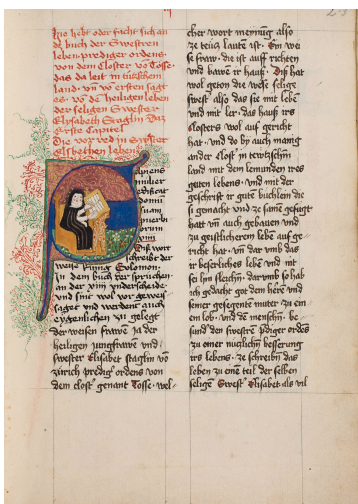 Hie hebt oder facht sich an
dz buch der Swestren
leben prediger ordens
von dem Closter vō Tosse
das da leit in tütschem
land. vn̄ vō ersten sagt
es vō dē heiligen leben
der seligen Swester
Elyzabeth Staglin Daz
Erste Capitel
Die vor red in Swester
Elsbethen leben
Sapiens
mulier
edificat
domū
suam
puerbi
orum
xiiii
Diß wort
schreibet der
weise kunig Solomon
in dem buch der spruchen
an der xiiii underscheide
und sint wol vor gewis
saget und werdent auch
eygenlichen zu gelegt
der weisen frawē ja der
heiligen jungfrawē vnd
swester Elisabet staglin vō
zürich predig ordens von
dem closter genant Tosse. wel-
cher wort meinung also
ze teüsch lautet ist. Ein wei
se fraw. die ist auff richten
und bawē ir hauß. Diß hat
wol geton die weise selige
swest also das sie mit lebē
und mit ler. das hauß irs
Closters wol auf gericht
hat. und do by auch manig
ander Clost in tewtschem
land mit dem lemunden ires
guten lebens. und mit der
geschrift ir gutē büchlein die
si gemacht vnd ze samē gefügt
hatt vn̄ auch gebauen und
zu geistlicherem lebē auf ge-
richt hat. vn̄ dar vmb das
ir besserliches lebē vnd mit
sei hin sleichen. darvmb so hab
ich gedacht got dem herē und
seiner gesegente muter zu ein
em lob. vnd dē menschen. be-
sund den swestrē p̄diger ordēs
zu einer nuczlichē besserung
irs lebens. ze schreibē das
loben zu einē teil der selben
seligē Swest Elisabet. als vil